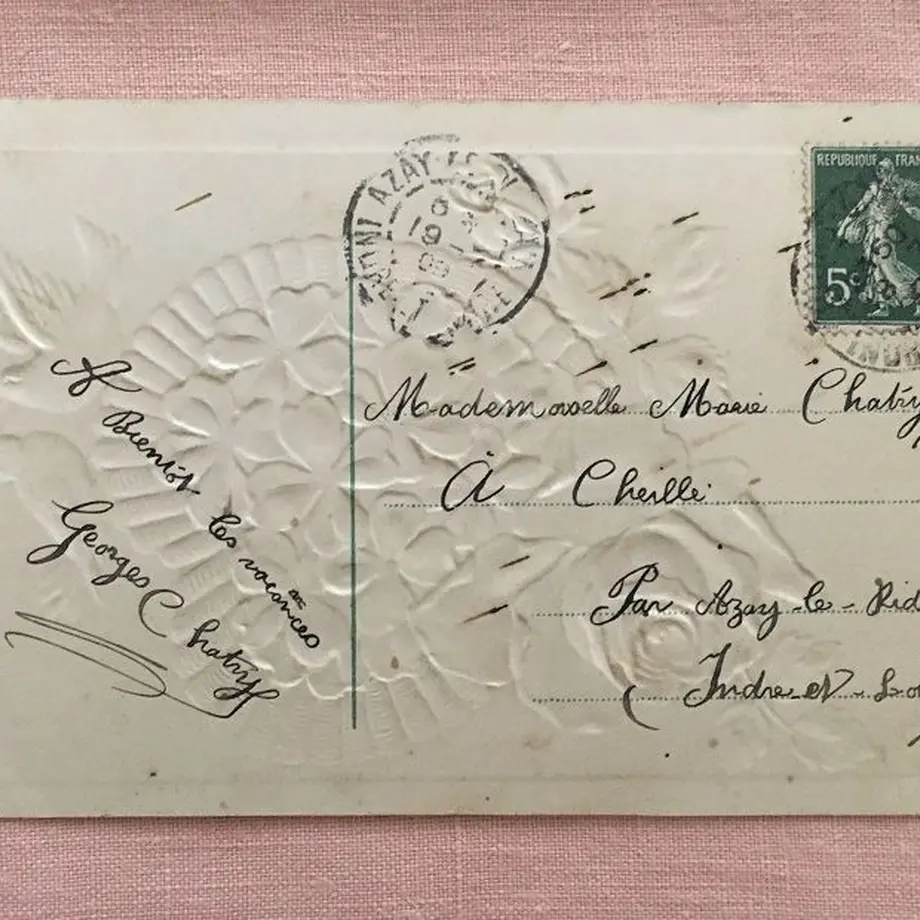 A
Bientôt
les vacances
Georges Chatry
AZAY
19
REPUBLIQUE FRAN
5c
Mademoiselle Marie Chatry
À Cheillé
Par Azay-le-Rid
(Indre-et-Lo
INDR